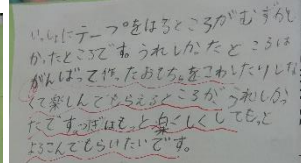 いっしょにテープをはるところがむずかし
かったところです。うれしかったところは
がんばって作ったおもちゃをこわしたりしな
くて楽しんでもらえるところがうれしかっ
たです。つぎはもっと楽しくしてもっと
よろこんでもらいたいです。